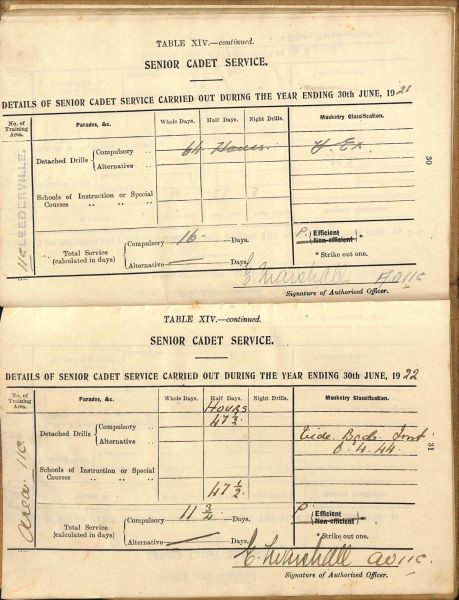 TABLE XIV.—continued.
SENIOR CADET SERVICE.
DETAILS OF SENIOR CADET SERVICE CARRIED OUT DURING THE YEAR ENDING 30th JUNE, 1921
No. of Training Area. Parades, &c. Whole Days. Half Days. Night Drills. Musketry Classification.
11C LEEDERVILLE.
Detached Drills { Compulsory .. 64 Hours
Alternative ..
Schools of Instruction or Special
Courses ,, ,, ,,
Total Service { Compulsory 16 —Days.
(calculated in days) Alternative —Days.
P. { Efficient
Non-efficient } *
* Strike out one.
E. Marshall AO 11C
Signature of Authorized Officer.
30
TABLE XIV.—continued.
SENIOR CADET SERVICE.
DETAILS OF SENIOR CADET SERVICE CARRIED OUT DURING THE YEAR ENDING 30th JUNE, 1922
No. of Training Area. Parades, &c. Whole Days. Half Days. Night Drills. Musketry Classification.
Area 11C
Hours
Detached Drills { Compulsory .. 47½
Alternative ..
Vide Bnds.
O. 4. 44.
Schools of Instruction or Special
Courses ,, ,, ,,
47½
Total Service { Compulsory 11¾ —Days.
(calculated in days) Alternative —Days.
P { Efficient
Non-efficient } *
*Strike out one.
E. Marshall AO 11C
Signature of Authorized Officer.
31